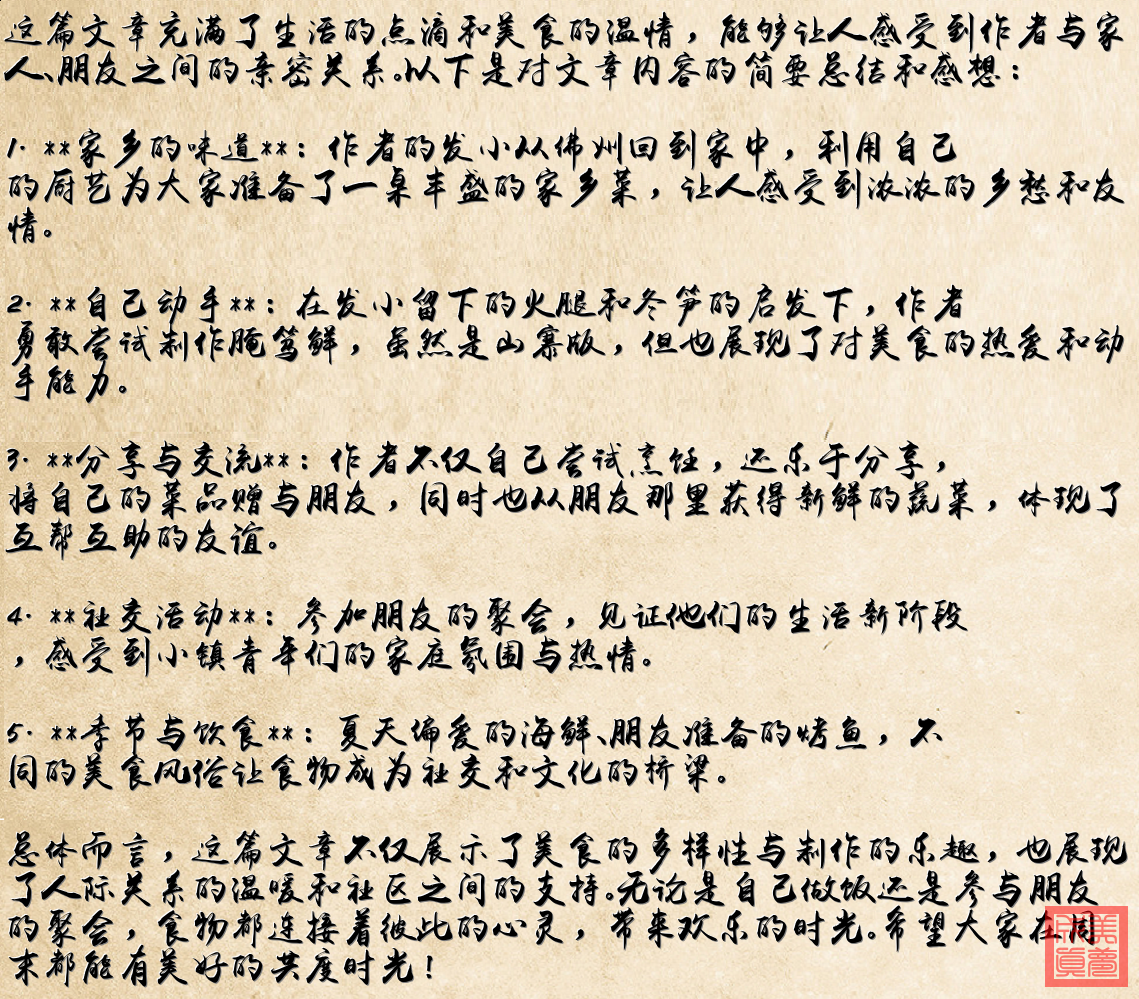 这篇文章充满了生活的点滴和美食的温情，能够让人感受到作者与家
人、朋友之间的亲密关系。以下是对文章内容的简要总结和感想：
1. **家乡的味道**：作者的发小从佛州回到家中，利用自己
的厨艺为大家准备了一桌丰盛的家乡菜，让人感受到浓浓的乡愁和友
情。
2. **自己动手**：在发小留下的火腿和冬笋的启发下，作者
勇敢尝试制作腌笃鲜，虽然是山寨版，但也展现了对美食的热爱和动
手能力。
3. **分享与交流**：作者不仅自己尝试烹饪，还乐于分享，
将自己的菜品赠与朋友，同时也从朋友那里获得新鲜的蔬菜，体现了
互帮互助的友谊。
4. **社交活动**：参加朋友的聚会，见证他们的生活新阶段
，感受到小镇青年们的家庭氛围与热情。
5. **季节与饮食**：夏天偏爱的海鲜、朋友准备的烤鱼，不
同的美食风俗让食物成为社交和文化的桥梁。
总体而言，这篇文章不仅展示了美食的多样性与制作的乐趣，也展现
了人际关系的温暖和社区之间的支持。无论是自己做饭还是参与朋友
的聚会，食物都连接着彼此的心灵，带来欢乐的时光。希望大家在周
末都能有美好的共度时光！